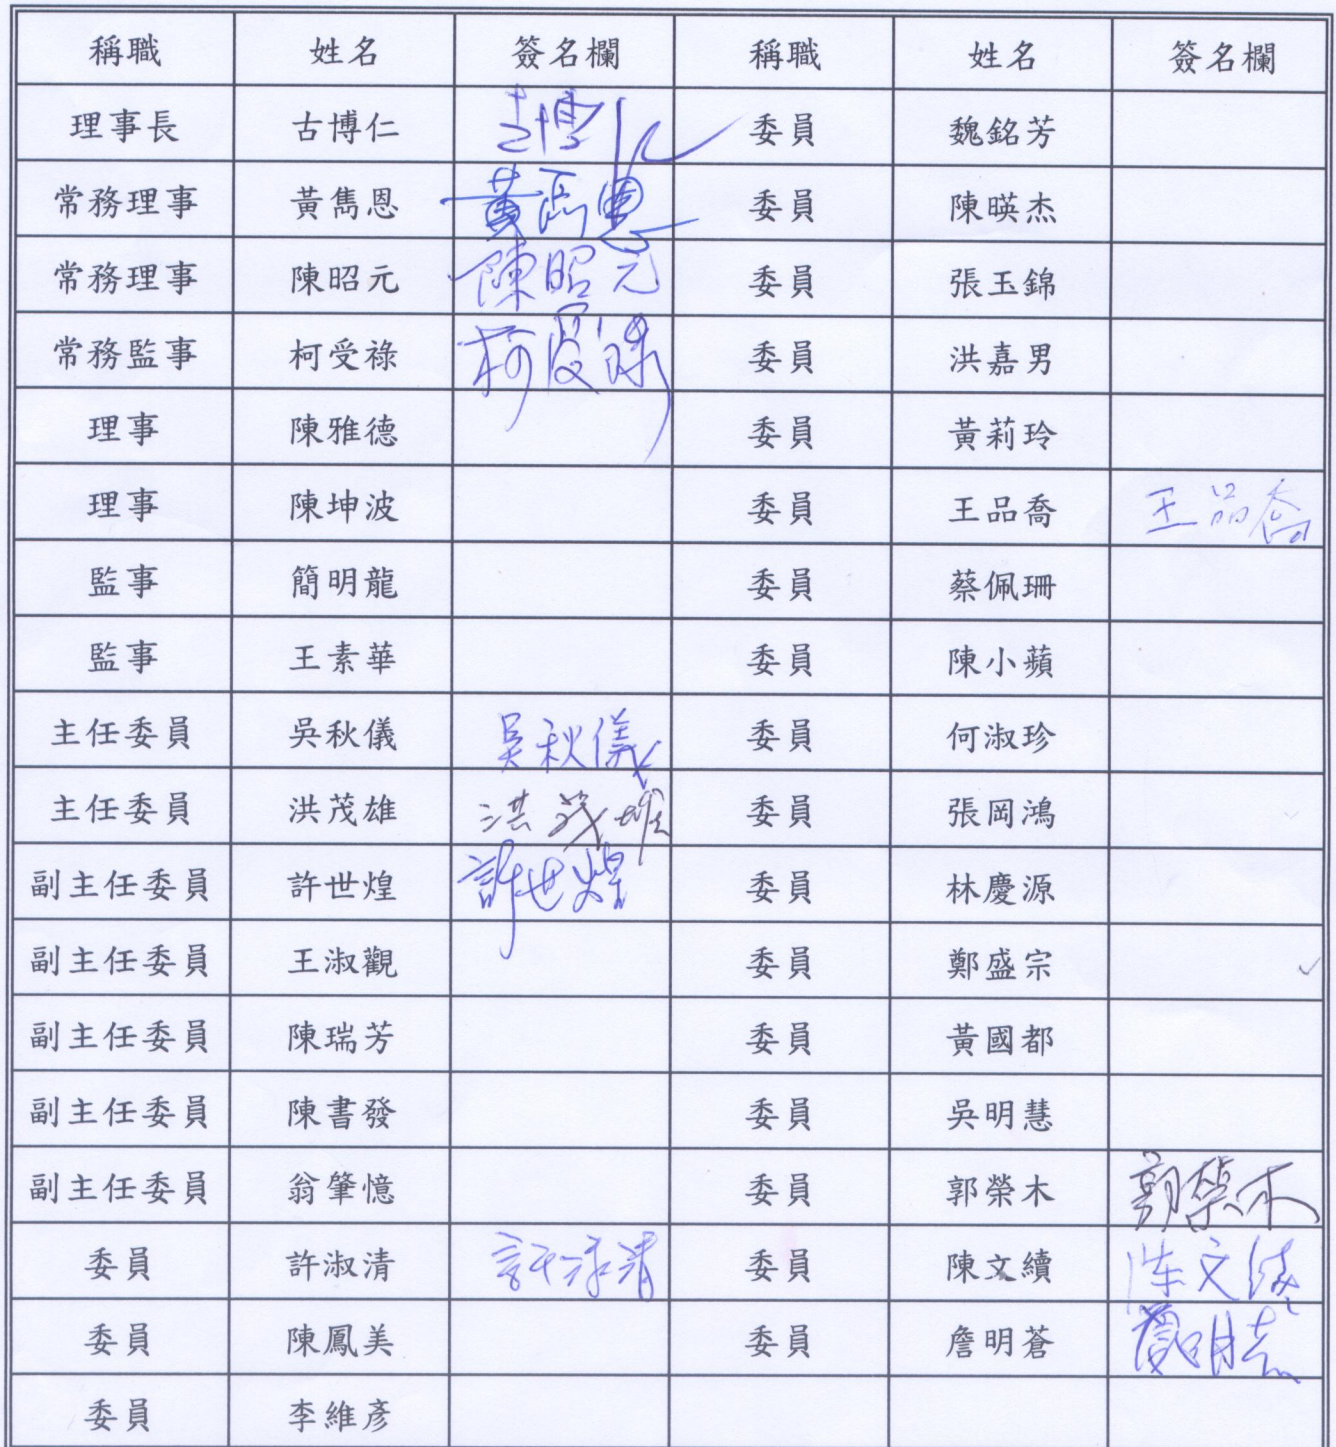 稱職 姓名 簽名欄 稱職 姓名 簽名欄
理事長 古博仁 委員 魏銘芳
常務理事 黃雋恩 黃雋恩 委員 陳暎杰
常務理事 陳昭元 陳昭元 委員 張玉錦
常務監事 柯受祿 柯受祿 委員 洪嘉男
理事 陳雅德 委員 黃莉玲
理事 陳坤波 委員 王品喬 王品喬
監事 簡明龍 委員 蔡佩珊
監事 王素華 委員 陳小蘋
主任委員 吳秋儀 吳秋儀 委員 何淑珍
主任委員 洪茂雄 洪茂雄 委員 張岡鴻
副主任委員 許世煌 許世煌 委員 林慶源
副主任委員 王淑觀 委員 鄭盛宗
副主任委員 陳瑞芳 委員 黃國都
副主任委員 陳書發 委員 吳明慧
副主任委員 翁肇憶 委員 郭榮木 郭榮木
委員 許淑清 許淑清 委員 陳文續 陈文续
委員 陳鳳美 委員 詹明蒼
委員 李維彥